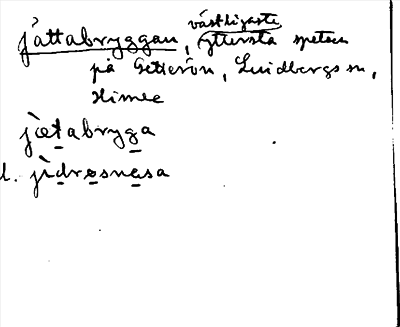 jättabryggan, västligaste
yttersta spetsen
på Getterön, Lindbergs sn,
Himle
jætabryga
l. jìdrəsnæsa